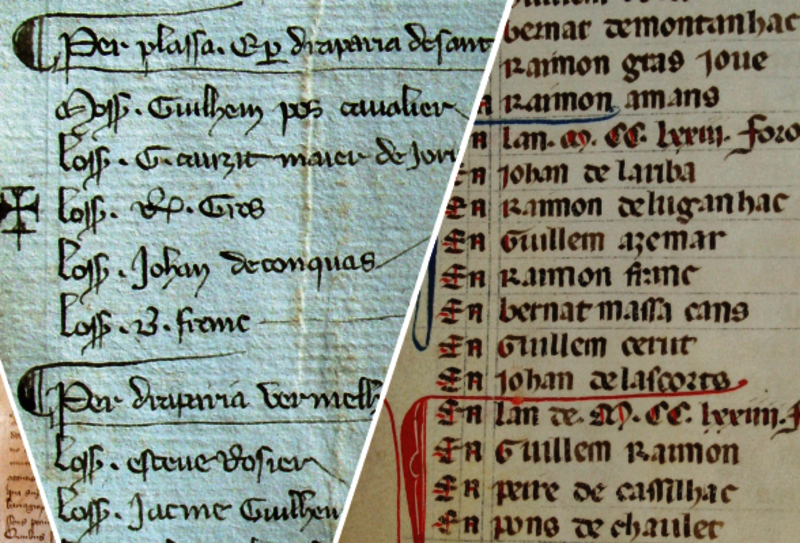 Per plassa. Ep draparia desant
Moss. Guilhem pos cavalier
Loss. G. maier de Jor
Loss. Gros
Loss. Johan deconquas
Loss. B. franc
Per draparia vermelh
Loss. esteve Rosier
Loss. Jacme Guilhem
bernat demontanhac
Raimon gras Joue
n Raimon amans
n lan. M. CC. lxxiii. foro
En Johan de lariba
En Raimon deluganhac
En Guillem azemar
En Raimon franc
En bernat massa cans
En Guillem cerut
En Johan delascorts
En lan de. M. CC. lxxiiii. f
En Guillem Raimon
En peire de cassilhac
En pons de chaulet